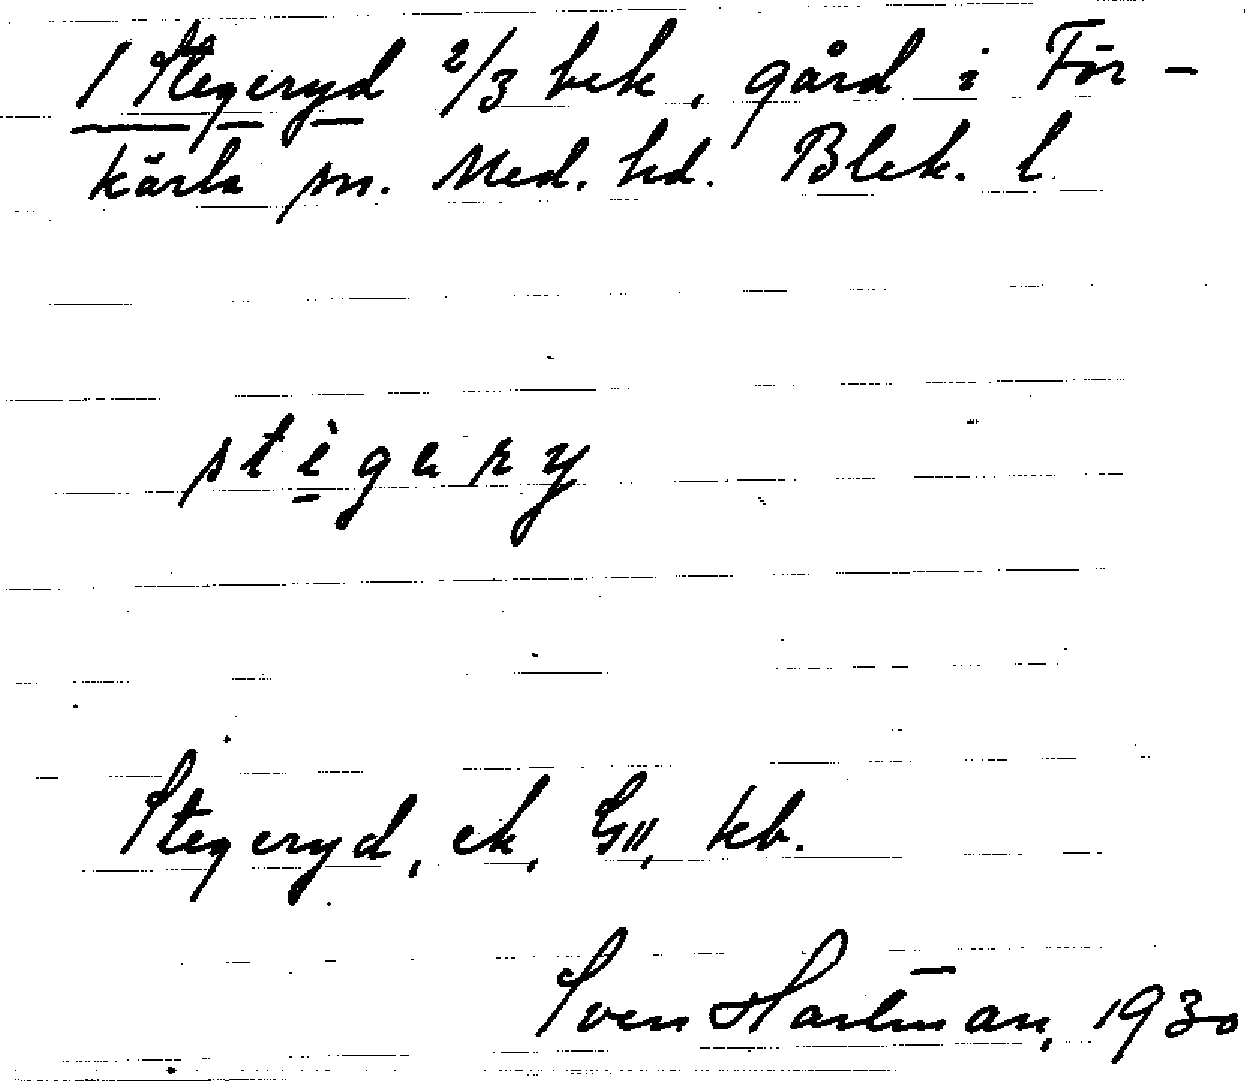 1 Stegeryd 2/3 bek, gård i För-
kärla sn. Med. hd. Blek. l
stìgery
Stegeryd, ek, GII, kb.
Sven Hartman, 1930